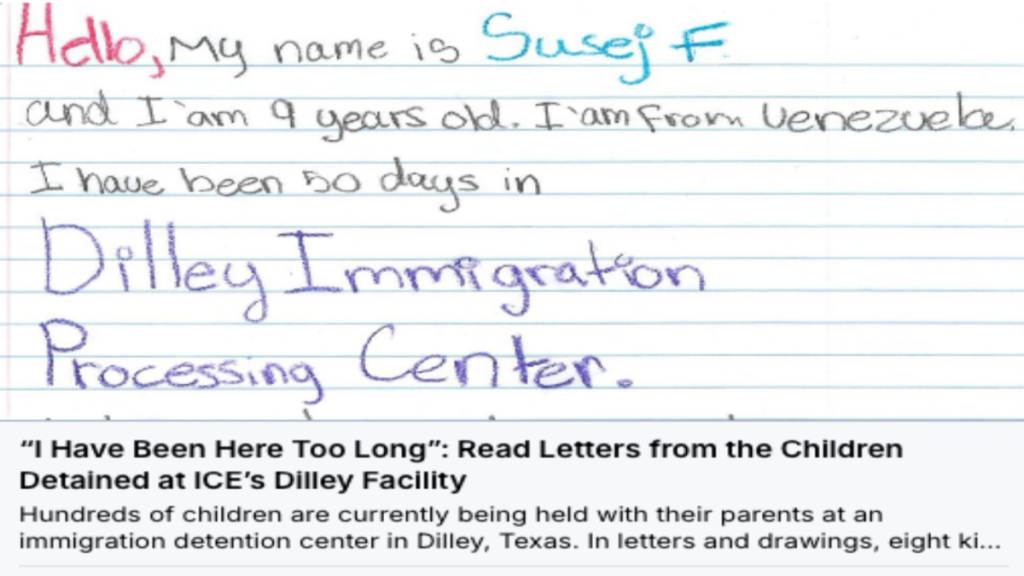 Hello, My name is Susej F.
and I'am 9 years old. I'am from Venezuela.
I have been 50 days in
Dilley Immigration
Processing Center.
“I Have Been Here Too Long”: Read Letters from the Children
Detained at ICE’s Dilley Facility
Hundreds of children are currently being held with their parents at an
immigration detention center in Dilley, Texas. In letters and drawings, eight ki...